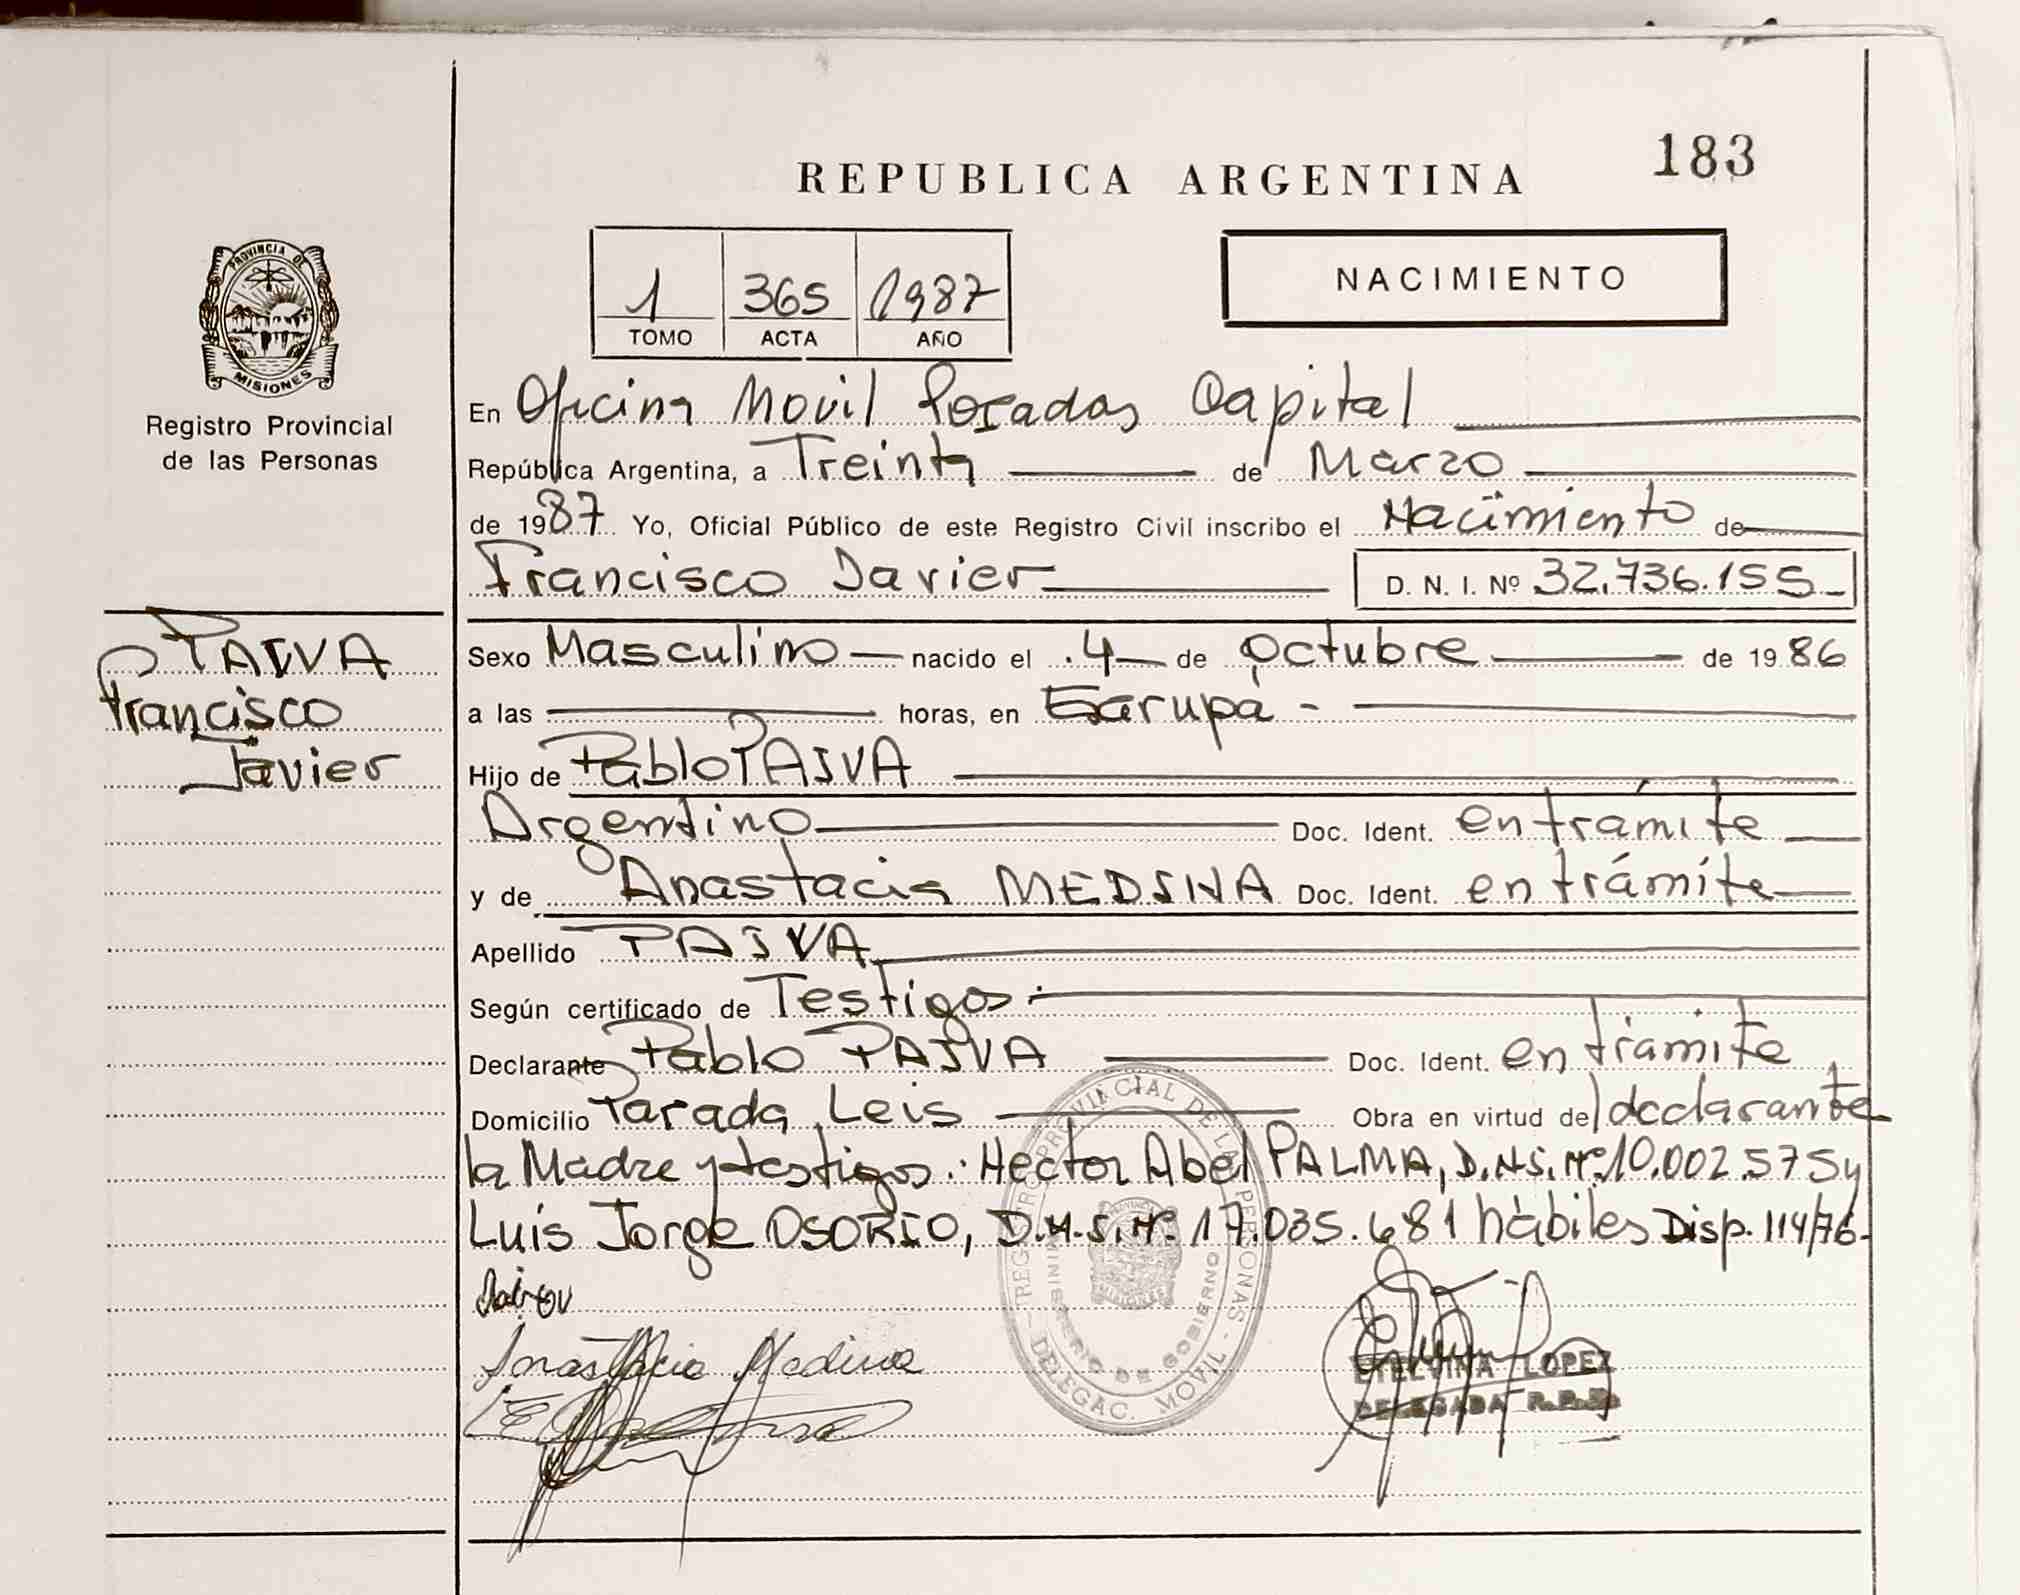 183
REPUBLICA ARGENTINA
PROVINCIA DE
MISIONES
Registro Provincial
de las Personas
1 365 1987
TOMO ACTA AÑO
NACIMIENTO
En Oficina Movil Posadas Capital
República Argentina, a Treinta de Marzo
de 1987 Yo, Oficial Público de este Registro Civil inscribo el Nacimiento de
Francisco Javier D. N. I. Nº 32.736.155
PAIVA
Francisco
Javier
Sexo Masculino nacido el 4 de Octubre de 1986
a las horas, en Garupá
Hijo de Pablo PAIVA
Argentino Doc. Ident. en trámite
y de Anastacia MEDINA Doc. Ident. en trámite
Apellido PAIVA
Según certificado de Testigos
Declarante Pablo PAIVA Doc. Ident. en trámite
Domicilio Parada Leis Obra en virtud de declarante
la Madre y testigos: Hector Abel PALMA, D.N.I. Nº 10.002.575 y
Luis Jorge OSORIO, D.N.I. Nº 17.035.681 hábiles Disp. 114/76-
Anastacia Medina
REGISTRO PROVINCIAL DE LAS PERSONAS - DELEGAC. MOVIL -
MINISTERIO DE GOBIERNO
ETELVINA LOPEZ
DELEGADA R.P.P.